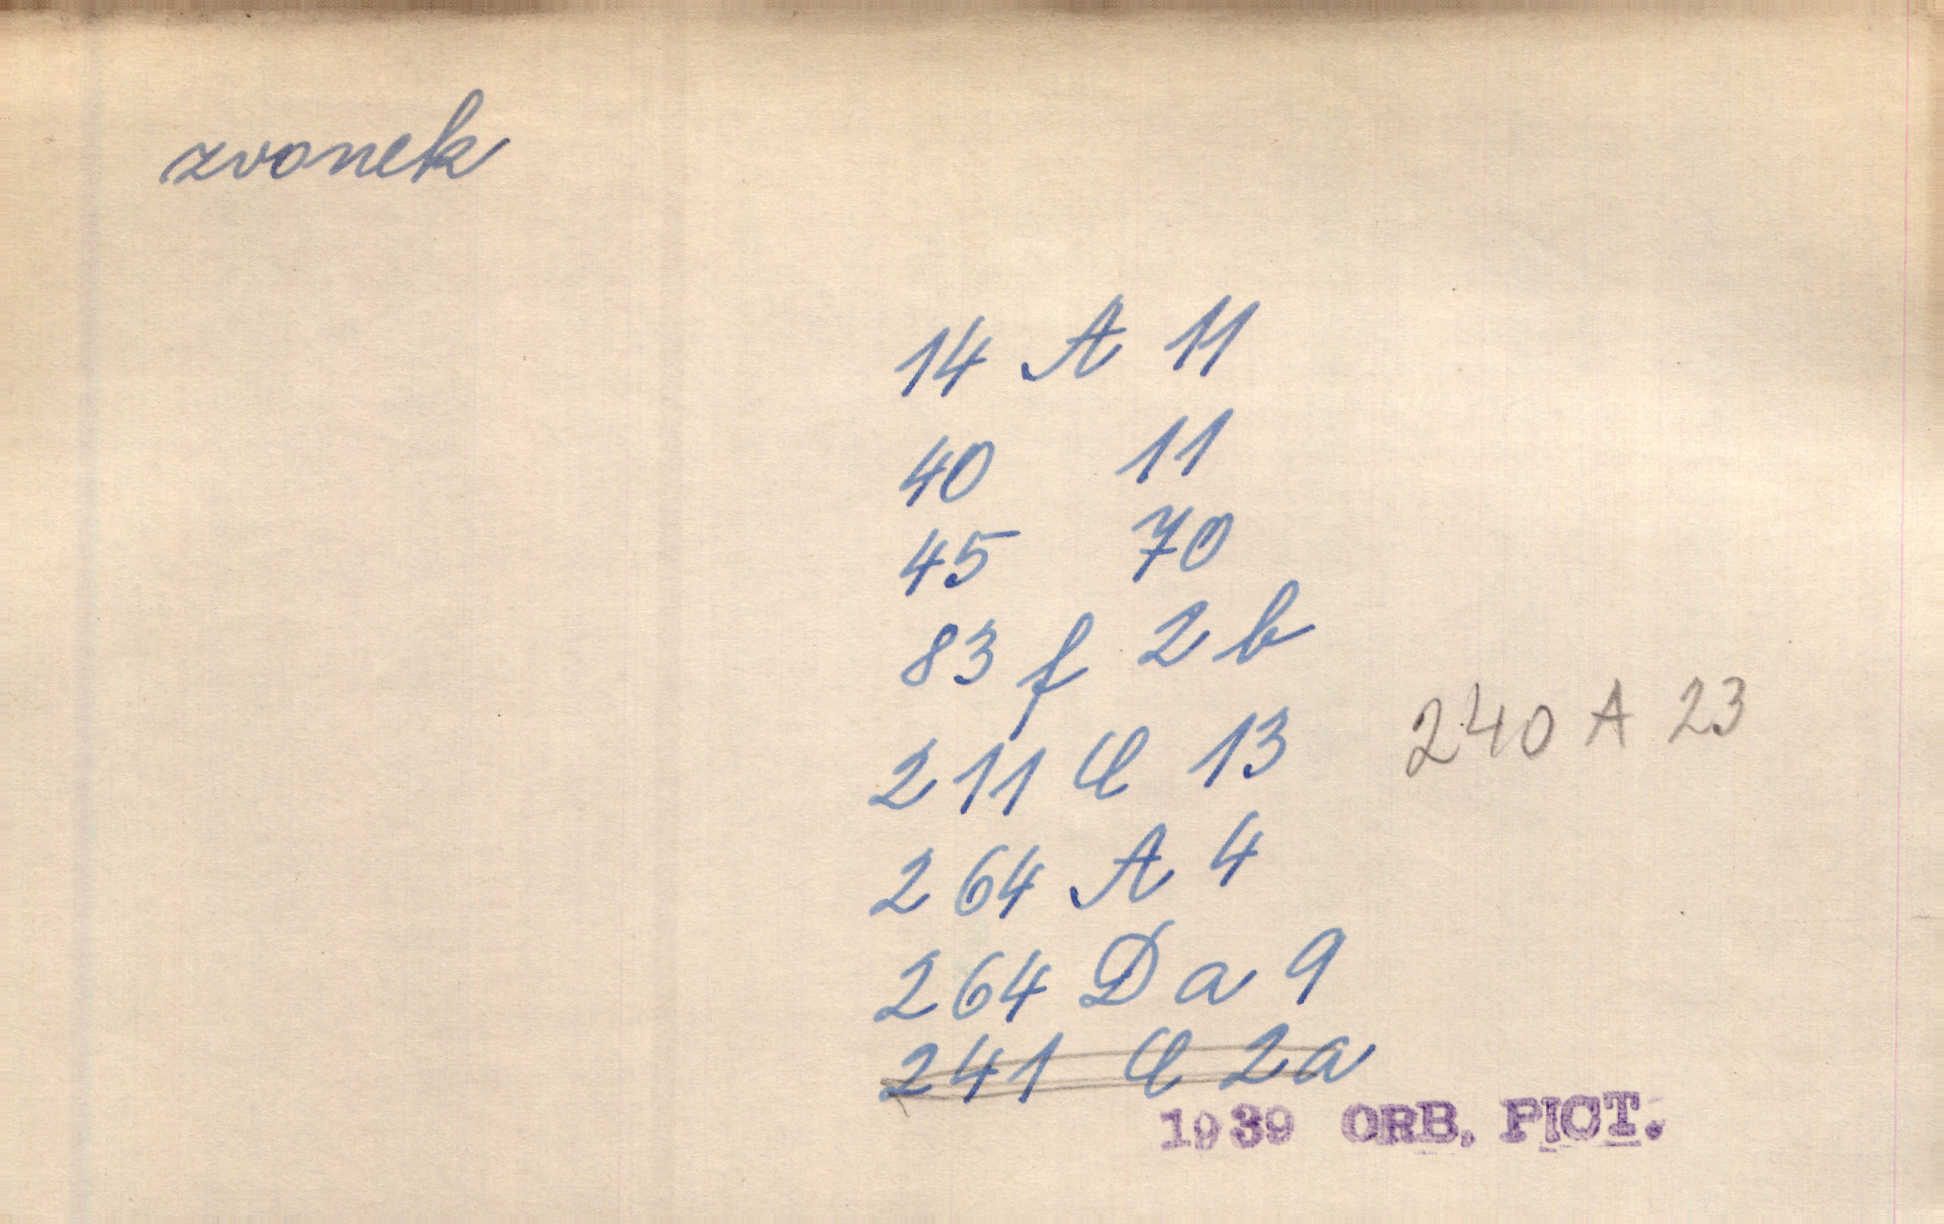 zvonek
14 A 11
40 11
45 70
83 f 2 b
211 C 13 240 A 23
264 A 4
264 D a 9
241 C 2a
1939 ORB. PICT.